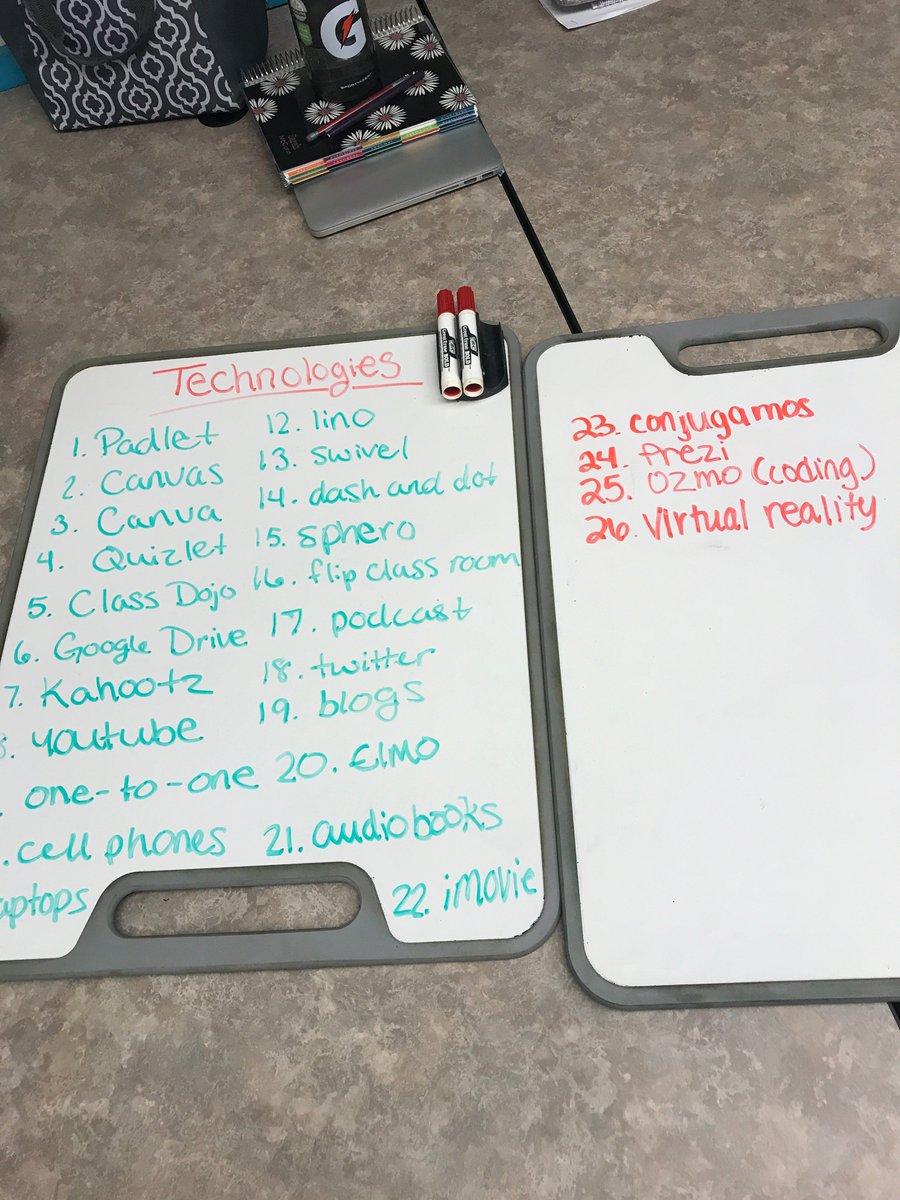 Technologies
1. Padlet
2. Canvas
3. Canva
4. Quizlet
5. Class Dojo
6. Google Drive
7. Kahootz
8. youtube
. one-to-one
. cell phones
aptops
12. lino
13. swivel
14. dash and dot
15. sphero
16. flip class room
17. podcast
18. twitter
19. blogs
20. Elmo
21. audiobooks
22. iMovie
23. conjugamos
24. Prezi
25. Ozmo (coding)
26. Virtual reality
G